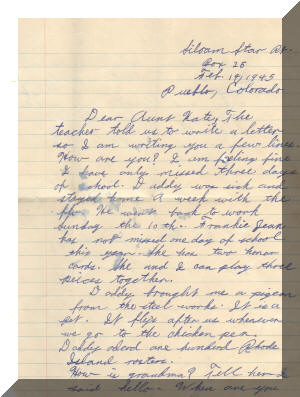 Siloam Star Rt.
Box 25
Feb. 19, 1945
Pueblo, Colorado
Dear Aunt Kate, The
teacher told us to write a letter
so I am writing you a few lines.
How are you? I am feeling fine
I have only missed three days
of school. Daddy was sick and
stayed home a week with the
flu. He went back to work
Sunday the 10th. Frankie Jean
has not missed one day of school
this year. She has two honor
cards. She and I can play three
peices together.
Daddy brought me a pigeon
from the steel works. It is a
pet. It flies after us whenever
we go to the chicken pen.
Daddy one hundred Rhode
Island
How is grandma? Tell her I
said hello. When are you